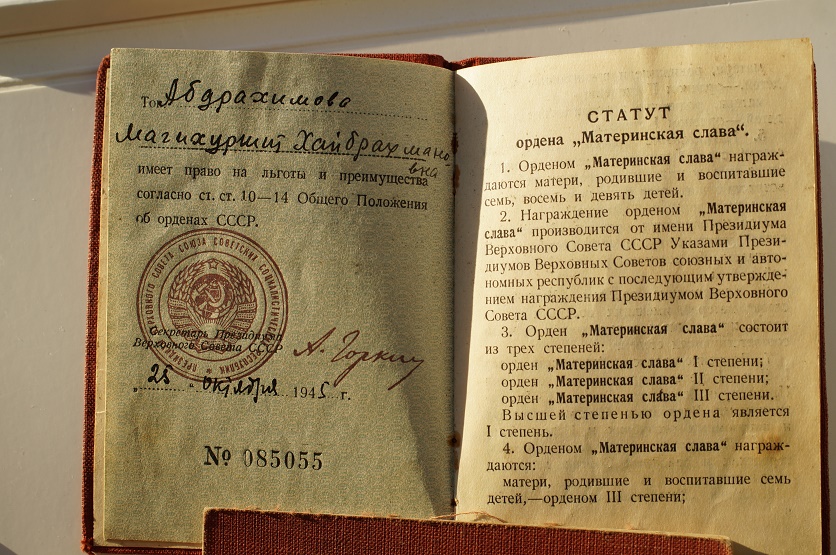 Тов. Абдрахимова
Магихуршит Хайбрахмано
вна
имеет право на льготы и преимущества
согласно ст. ст. 10—14 Общего Положения
об орденах СССР.
ПРЕЗИДИУМ ВЕРХОВНОГО СОВЕТА СОЮЗА СОВЕТСКИХ СОЦИАЛИСТИЧЕСКИХ РЕСПУБЛИК
Секретарь Президиума
Верховного Совета СССР А. Горкин
„25 “ октября 1945 г.
№ 085055
СТАТУТ
ордена „Материнская слава“.
1. Орденом „Материнская слава“ награж-
даются матери, родившие и воспитавшие
семь, восемь и девять детей.
2. Награждение орденом „Материнская
слава“ производится от имени Президиума
Верховного Совета СССР Указами Прези-
диумов Верховных Советов союзных и авто-
номных республик с последующим утвержде-
нием награждения Президиумом Верховного
Совета СССР.
3. Орден „Материнская слава“ состоит
из трех степеней:
орден „Материнская слава“ I степени;
орден „Материнская слава“ II степени;
орден „Материнская слава“ III степени.
Высшей степенью ордена является
I степень.
4. Орденом „Материнская слава“ награж-
даются:
матери, родившие и воспитавшие семь
детей,—орденом III степени;